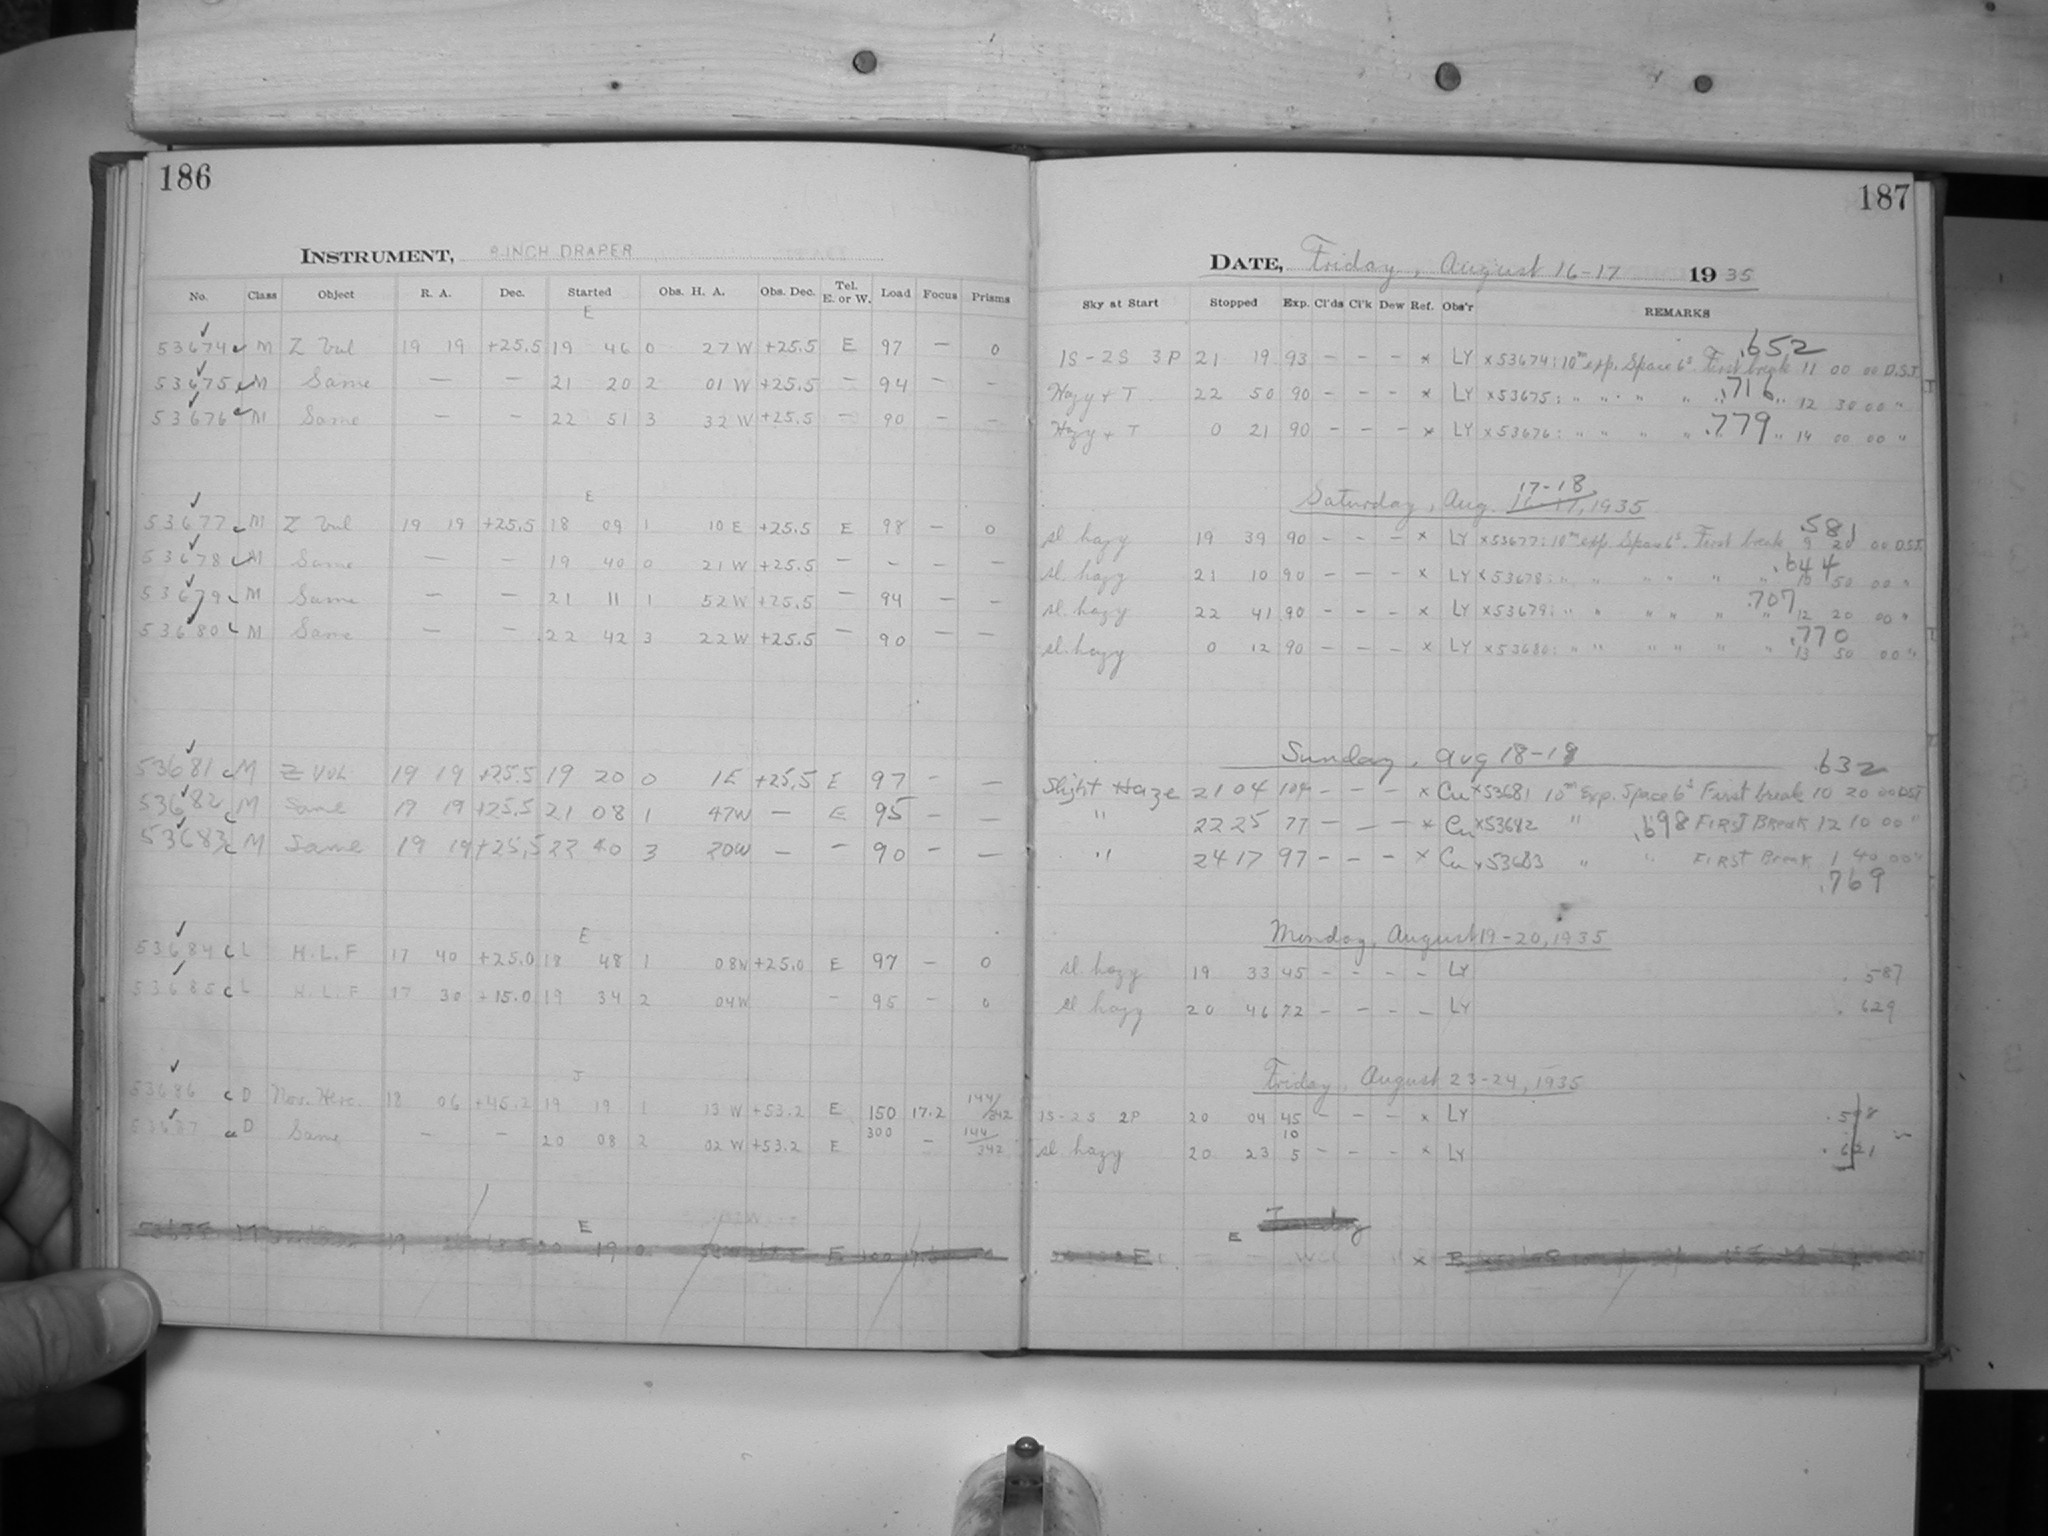 186
187
INSTRUMENT, 8 INCH DRAPER
DATE, Friday, August 16-17 1935
No. Class Object R. A. Dec. Started Obs. H. A. Obs. Dec. Tel. E. or W. Load Focus Prisms
Sky at Start Stopped Exp. Cl'ds Cl'k Dew Ref. Obs'r REMARKS
E
.652
53674 c M Z Vul 19 19 +25.5 19 46 0 27 W +25.5 E 97 — 0 1S-2S 3P 21 19 93 - - - x LY x53674: 10m exp. Space 6s. First break 11 00 00 D.S.T.
53675 c M Same — — 21 20 2 01 W +25.5 — 94 — — Hazy + T 22 50 90 - - - x LY x53675: " " " " " .716 " 12 30 00 "
53676 c M Same — — 22 51 3 32 W +25.5 — 90 — — Hazy + T 0 21 90 - - - x LY x53676: " " " " " .779 " 14 00 00 "
17-18
Saturday, Aug. 16-17, 1935
E
.581
53677 c M Z Vul 19 19 +25.5 18 09 1 10 E +25.5 E 98 — 0 sl hazy 19 39 90 - - - x LY x53677: 10m exp. Space 6s. First break 9 20 00 D.S.T.
.644
53678 c M Same — — 19 40 0 21 W +25.5 - - - - sl. hazy 21 10 90 - - - x LY x53678: " " " " " " 10 50 00 "
.707
53679 c M Same — — 21 11 1 52 W +25.5 — 94 — — sl. hazy 22 41 90 - - - x LY x53679: " " " " " " 12 20 00 "
.770
53680 c M Same — — 22 42 3 22 W +25.5 — 90 — — sl. hazy 0 12 90 - - - x LY x53680: " " " " " " 13 50 00 "
Sunday, Aug 18-19
.632
53681 c M Z Vul 19 19 +25.5 19 20 0 1E +25.5 E 97 - — Slight Haze 21 04 104 - - - x Cu x53681 10m Exp. Space 6s First break 10 20 00 DST
53682 c M Same 19 19 +25.5 21 08 1 47W — E 95 - — " 22 25 77 - - - x Cu x53682 " .698 FIRST Break 12 10 00 "
53683 c M Same 19 19 +25.5 22 40 3 20W — - 90 - — " 24 17 97 - - - x Cu x53683 " " FIRST Break 1 40 00 "
.769
Monday, August 19-20, 1935
E
53684 c L H.L.F 17 40 +25.0 18 48 1 08W +25.0 E 97 — 0 sl. hazy 19 33 45 - - - - LY .587
53685 c L H.L.F 17 30 +15.0 19 34 2 04W - 95 - 0 sl hazy 20 46 72 - - - - LY .629
Friday, August 23-24, 1935
J
53686 c D Nov. Herc. 18 06 +45.2 19 19 1 13 W +53.2 E 150 17.2 144/342 1S-2S 2P 20 04 45 - - - x LY .598
53687 c D Same - - 20 08 2 02 W +53.2 E 300 — 144/342 sl hazy 20 23 10 5 - - - x LY .621
E
E